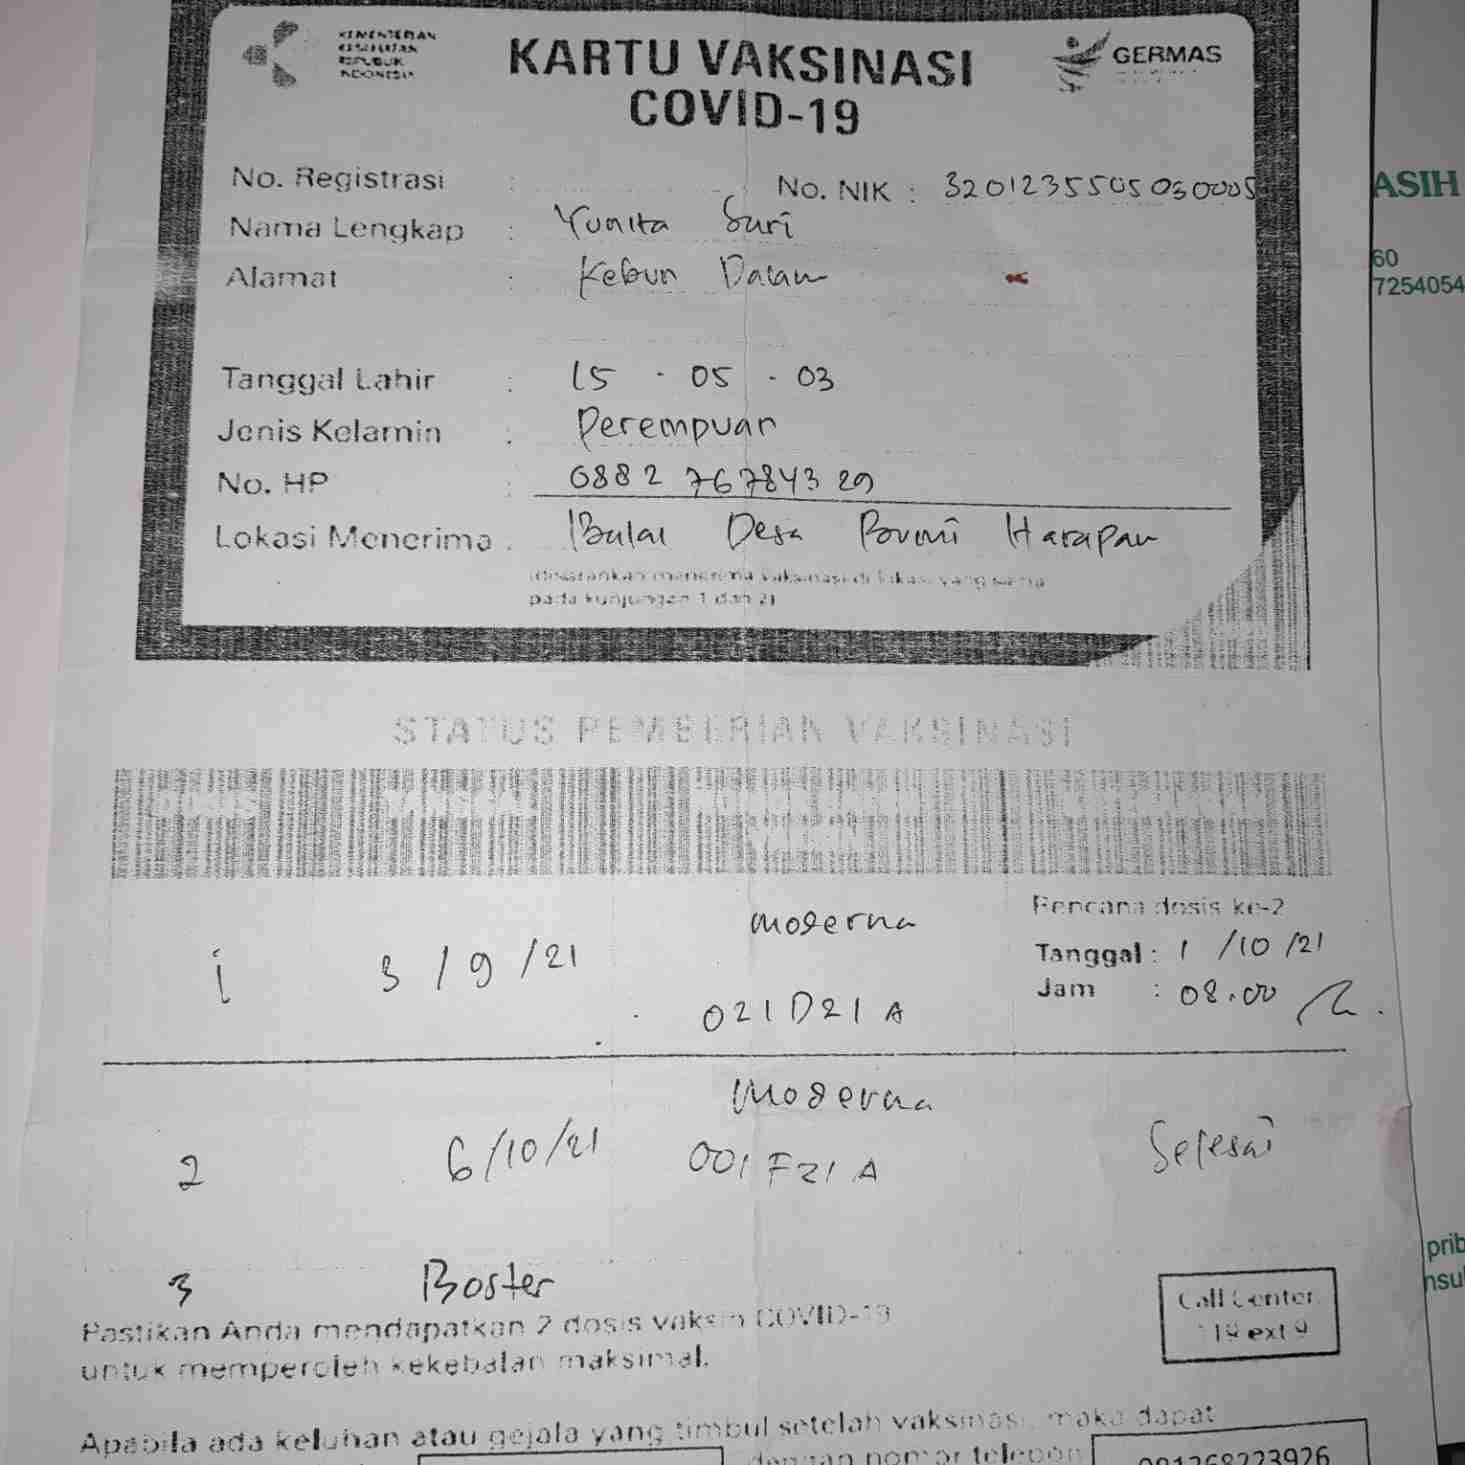 KEMENTERIAN
KESEHATAN
REPUBLIK
INDONESIA
KARTU VAKSINASI
COVID-19
GERMAS
No. Registrasi :
No. NIK : 3201235505030005
Nama Lengkap : Yunita Sari
Alamat : Kebun Dalam
Tanggal Lahir : 15 . 05 . 03
Jenis Kelamin : Perempuan
No. HP : 0882 767843 29
Lokasi Menerima : Balai Desa Bumi Harapan
(disarankan menerima vaksinasi di lokasi yang sama
pada kunjungan 1 dan 2)
STATUS PEMBERIAN VAKSINASI
1 3/9/21 Moderna
021D21A
Rencana dosis ke-2
Tanggal : 1/10/21
Jam : 08.00
2 6/10/21 Moderna
001F21A
Selesai
3 Boster
Pastikan Anda mendapatkan 2 dosis vaksin COVID-19
untuk memperoleh kekebalan maksimal.
Call Center
119 ext 9
Apabila ada keluhan atau gejala yang timbul setelah vaksinasi, maka dapat
dengan nomor telepon 081268223926
ASIH
60
7254054
prib
nsul